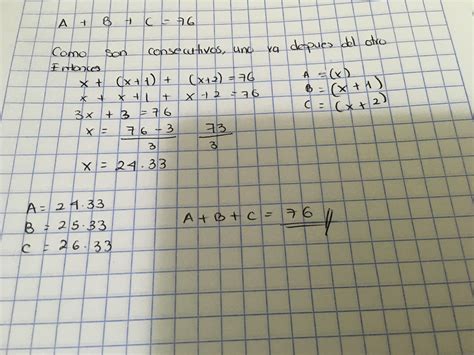 A + B + C = 76
Como son consecutivos, uno va despues del otro
Entonces
x + (x+1) + (x+2) = 76
x + x+1 + x+2 = 76
3x + 3 = 76
x = 76-3 73
3 3
x = 24.33
A = (x)
B = (x+1)
C = (x+2)
A = 24.33
B = 25.33
C = 26.33
A + B + C = 76